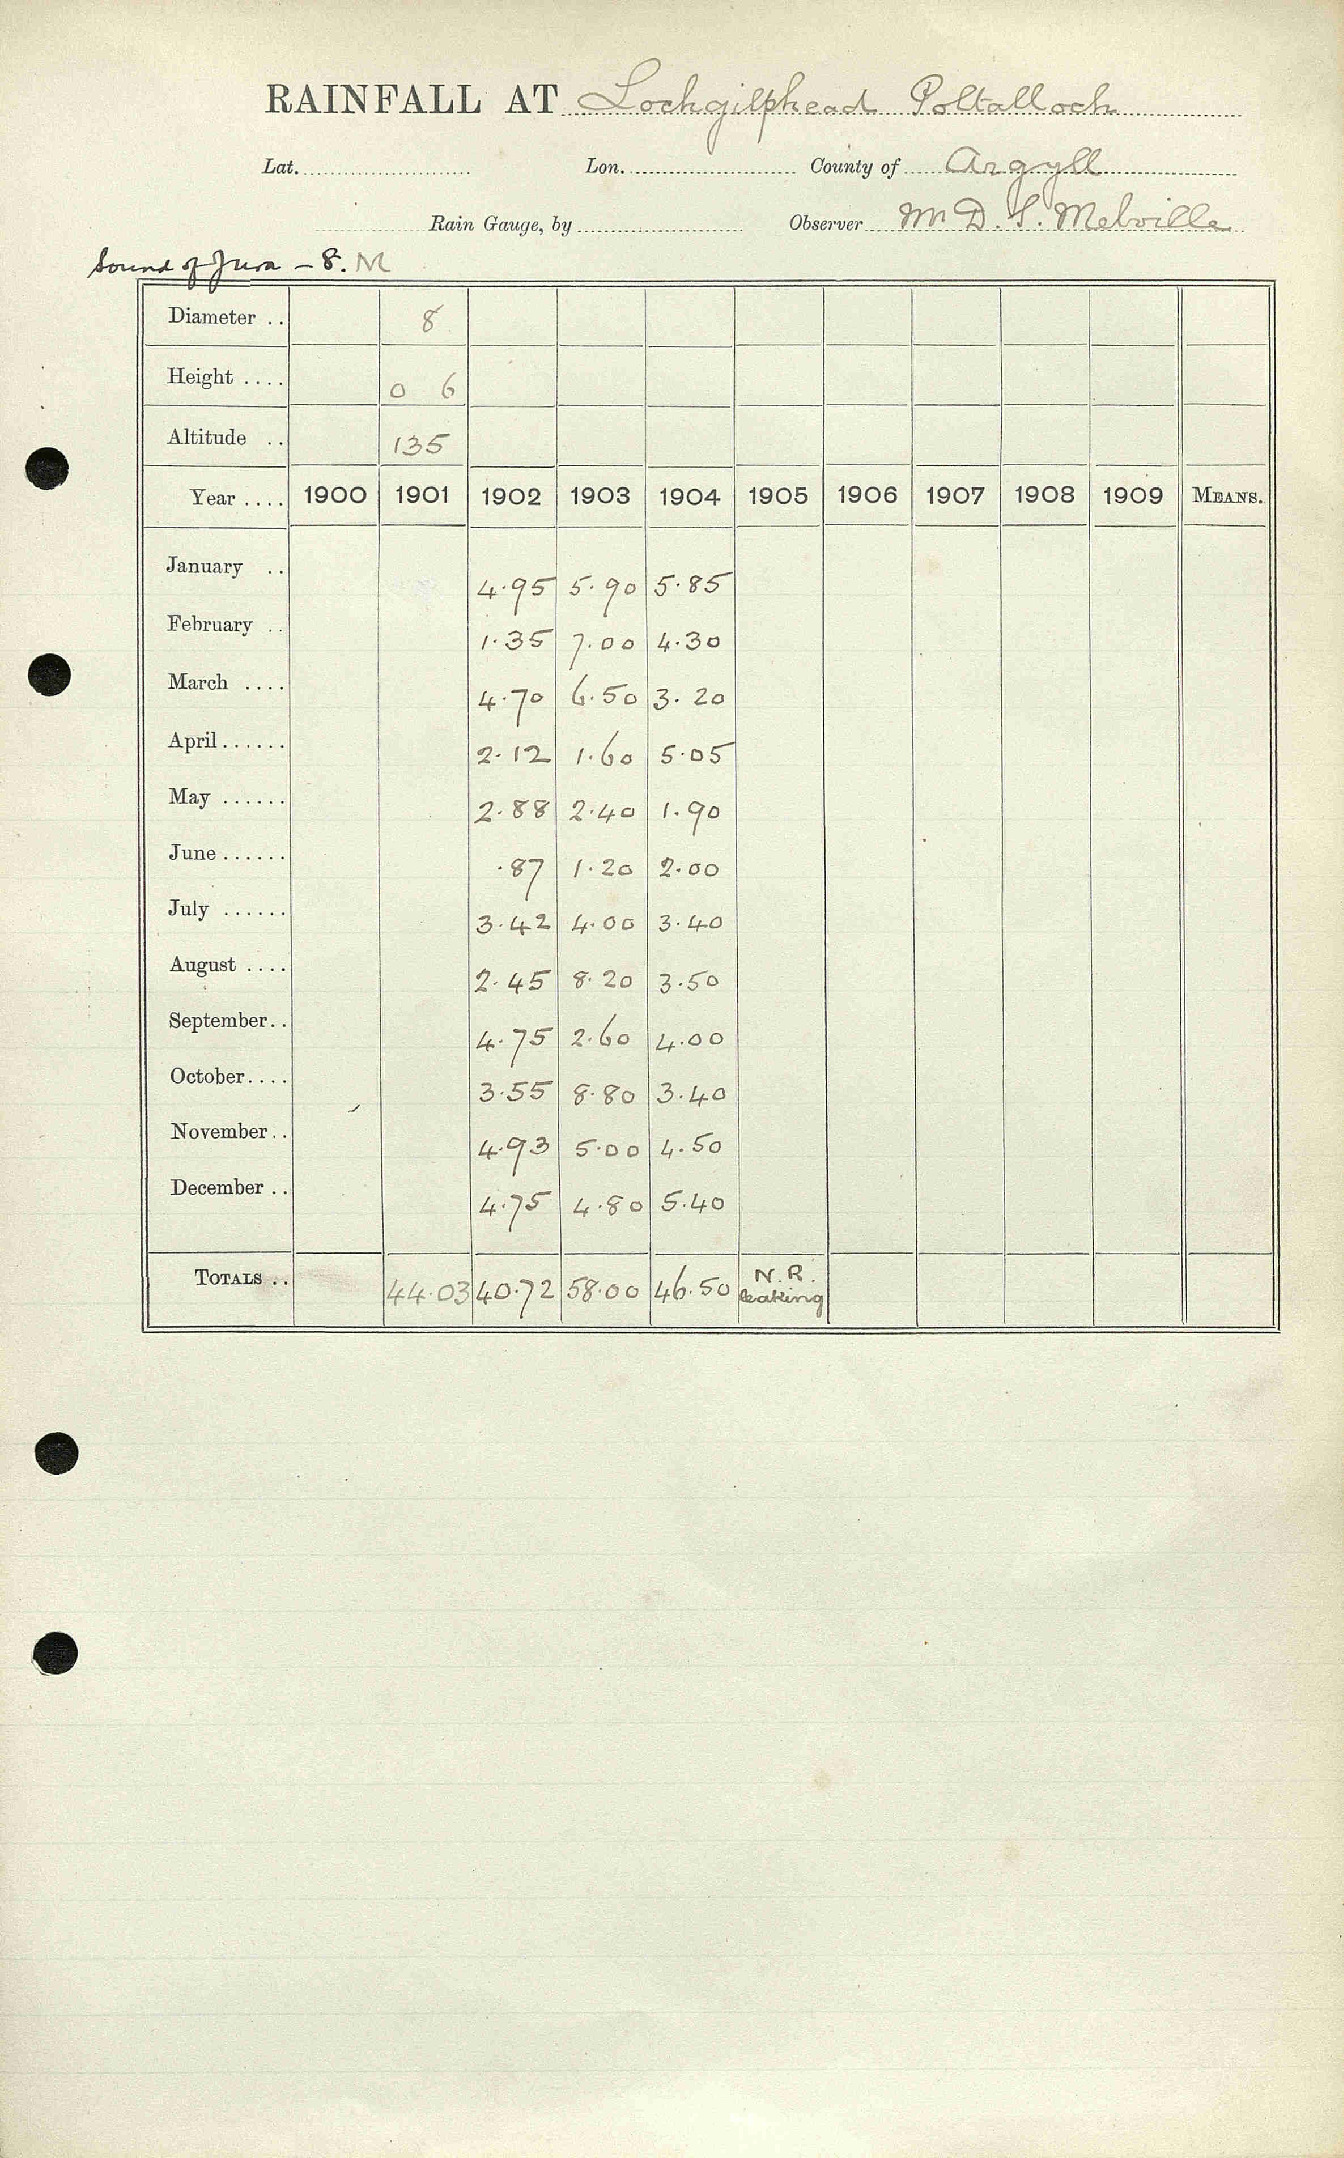 RAINFALL AT Lochgilphead Poltalloch
Lat. Lon. County of Argyll
Rain Gauge, by Observer Mr D. S. Melville
Sound of Jura - 8. M
Diameter .. 8
Height .... 0 6
Altitude .. 135
Year .... 1900 1901 1902 1903 1904 1905 1906 1907 1908 1909 MEANS.
January .. 4.95 5.90 5.85
February .. 1.35 7.00 4.30
March .... 4.70 6.50 3.20
April...... 2.12 1.60 5.05
May ...... 2.88 2.40 1.90
June...... .87 1.20 2.00
July ...... 3.42 4.00 3.40
August .... 2.45 8.20 3.50
September.. 4.75 2.60 4.00
October.... 3.55 8.80 3.40
November.. 4.93 5.00 4.50
December .. 4.75 4.80 5.40
TOTALS .. 44.03 40.72 58.00 46.50 N.R. leaking